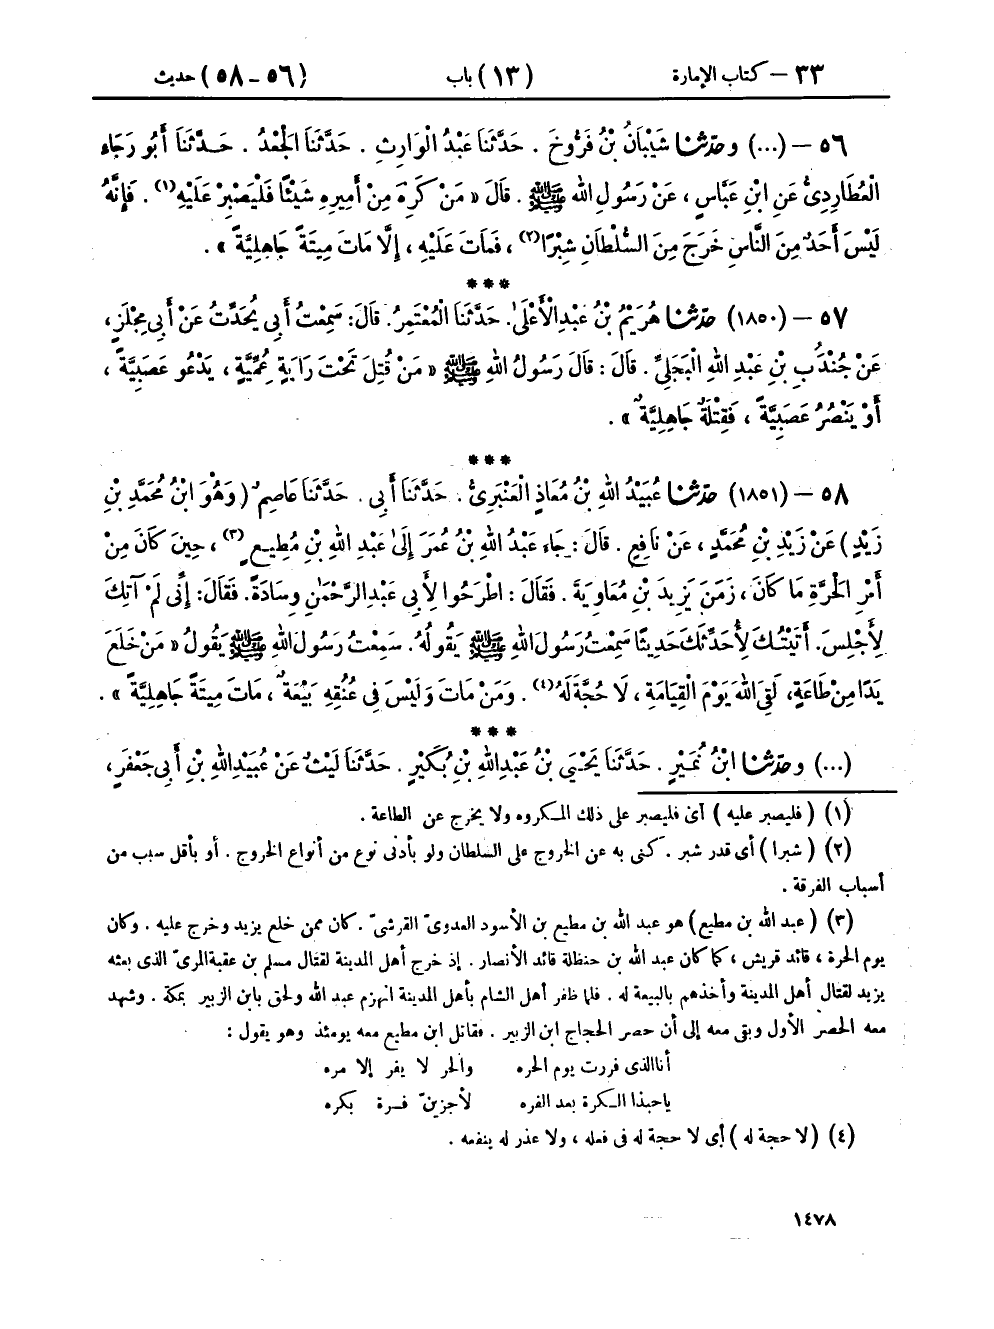 ٣٣ – كتاب الإمارة (١٣) باب (٥٦ – ٥٨) حديث
٥٦ – (...) وحَدَّثَنَا شَيْبَانُ بْنُ فَرُّوخَ . حَدَّثَنَا عَبْدُ الْوَارِثِ . حَدَّثَنَا الْجَعْدُ . حَدَّثَنَا أَبُو رَجَاء
الْعُطَارِدِىُّ عَنِ ابْنِ عَبَّاسٍ ، عَنْ رَسُولِ اللهِ ﷺ . قَالَ « مَنْ كَرِهَ مِنْ أَمِيرِهِ شَيْئًا فَلْيَصْبِرْ عَلَيْهِ(١) . فَإِنَّهُ
لَيْسَ أَحَدٌ مِنَ النَّاسِ خَرَجَ مِنَ السُّلْطَانِ شِبْرًا(٢) ، فَمَاتَ عَلَيْهِ ، إِلَّا مَاتَ مِيتَةً جَاهِلِيَّةً » .
***
٥٧ – (١٨٥٠) حَدَّثَنَا هُرَيْمُ بْنُ عَبْدِ الْأَعْلَىٰ. حَدَّثَنَا الْمُعْتَمِرُ. قَالَ: سَمِعْتُ أَبِى يُحَدِّثُ عَنْ أَبِى مِجْلَزٍ،
عَنْ جُنْدُبِ بْنِ عَبْدِ اللهِ الْبَجَلِىِّ . قَالَ : قَالَ رَسُولُ اللهِ ﷺ « مَنْ قُتِلَ تَحْتَ رَايَةٍ عُمِّيَّةٍ ، يَدْعُو عَصَبِيَّةً ،
أَوْ يَنْصُرُ عَصَبِيَّةً ، فَقِتْلَةٌ جَاهِلِيَّةٌ » .
***
٥٨ – (١٨٥١) حَدَّثَنَا عُبَيْدُ اللهِ بْنُ مُعَاذٍ الْعَنْبَرِىُّ . حَدَّثَنَا أَبِى . حَدَّثَنَا عَاصِمٌ (وَهُوَ ابْنُ مُحَمَّدِ بْنِ
زَيْدٍ) عَنْ زَيْدِ بْنِ مُحَمَّدٍ ، عَنْ نَافِعٍ . قَالَ : جَاءَ عَبْدُ اللهِ بْنُ عُمَرَ إِلَىٰ عَبْدِ اللهِ بْنِ مُطِيعٍ(٣) ، حِينَ كَانَ مِنْ
أَمْرِ الْحَرَّةِ مَا كَانَ ، زَمَنَ يَزِيدَ بْنِ مُعَاوِيَةَ . فَقَالَ : اطْرَحُوا لِأَبِى عَبْدِ الرَّحْمٰنِ وِسَادَةً. فَقَالَ: إِنِّى لَمْ آتِكَ
لِأَجْلِسَ. أَتَيْتُكَ لِأُحَدِّثَكَ حَدِيثًا سَمِعْتُ رَسُولَ اللهِ ﷺ يَقُولُهُ. سَمِعْتُ رَسُولَ اللهِ ﷺ يَقُولُ « مَنْ خَلَعَ
يَدًا مِنْ طَاعَةٍ، لَقِىَ اللهَ يَوْمَ الْقِيَامَةِ ، لَا حُجَّةَ لَهُ(٤) . وَمَنْ مَاتَ وَلَيْسَ فِى عُنُقِهِ بَيْعَةٌ ، مَاتَ مِيتَةً جَاهِلِيَّةً » .
***
(...) وحَدَّثَنَا ابْنُ نُمَيْرٍ . حَدَّثَنَا يَحْيَى بْنُ عَبْدِ اللهِ بْنِ بُكَيْرٍ . حَدَّثَنَا لَيْثٌ عَنْ عُبَيْدِ اللهِ بْنِ أَبِى جَعْفَرٍ،
(١) ( فليصبر عليه ) أى فليصبر على ذلك المكروه ولا يخرج عن الطاعة .
(٢) ( شبرا ) أى قدر شبر . كنى به عن الخروج على السلطان ولو بأدنى نوع من أنواع الخروج . أو بأقل سبب من
أسباب الفرقة .
(٣) ( عبد الله بن مطيع ) هو عبد الله بن مطيع بن الأسود العدوىّ القرشىّ . كان ممن خلع يزيد وخرج عليه . وكان
يوم الحرة ، قائد قريش ، كما كان عبد الله بن حنظلة قائد الأنصار . إذ خرج أهل المدينة لقتال مسلم بن عقبة المرىّ الذى بعثه
يزيد لقتال أهل المدينة وأخذهم بالبيعة له . فلما ظفر أهل الشام بأهل المدينة انهزم عبد الله ولحق بابن الزبير بمكة . وشهد
معه الحصر الأول وبقى معه إلى أن حصر الحجاج ابن الزبير . فقاتل ابن مطيع معه يومئذ وهو يقول :
أنا الذى فررت يوم الحره والحر لا يفر إلا مره
يا حبذا الكرة بعد الفره لأجزينّ فرة بكره
(٤) ( لا حجة له ) أى لا حجة له فى فعله ، ولا عذر له ينفعه .
١٤٧٨